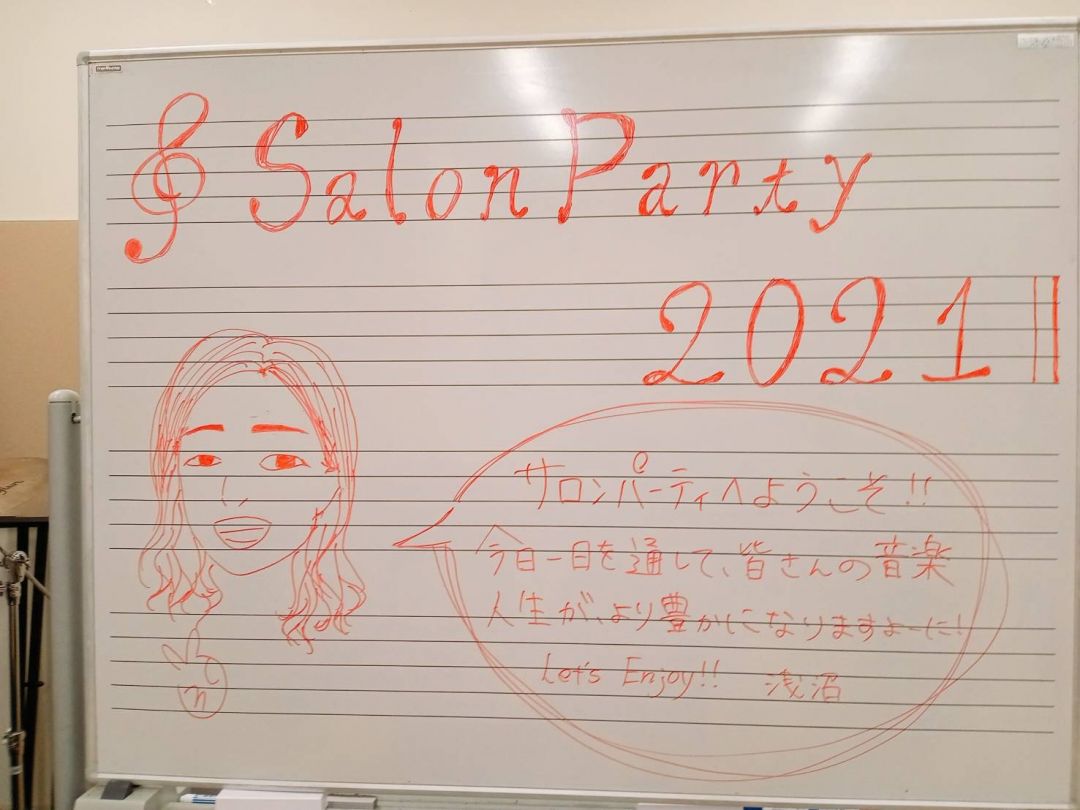 Salon Party
2021
サロンパーティへようこそ!!
今日一日を通して、皆さんの音楽
人生が、より豊かになりますよーに!
Let's Enjoy!! 浅沼